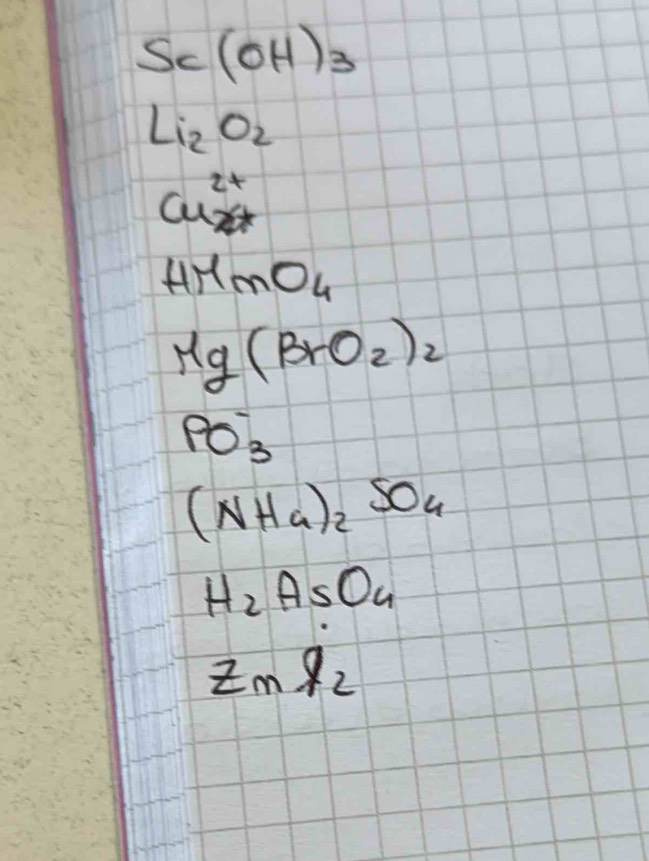 Sc(OH)₃
Li₂O₂
Cu²⁺
HMnO₄
Mg(BrO₂)₂
PO₃⁻
(NH₄)₂SO₄
H₂AsO₄
ZnI₂